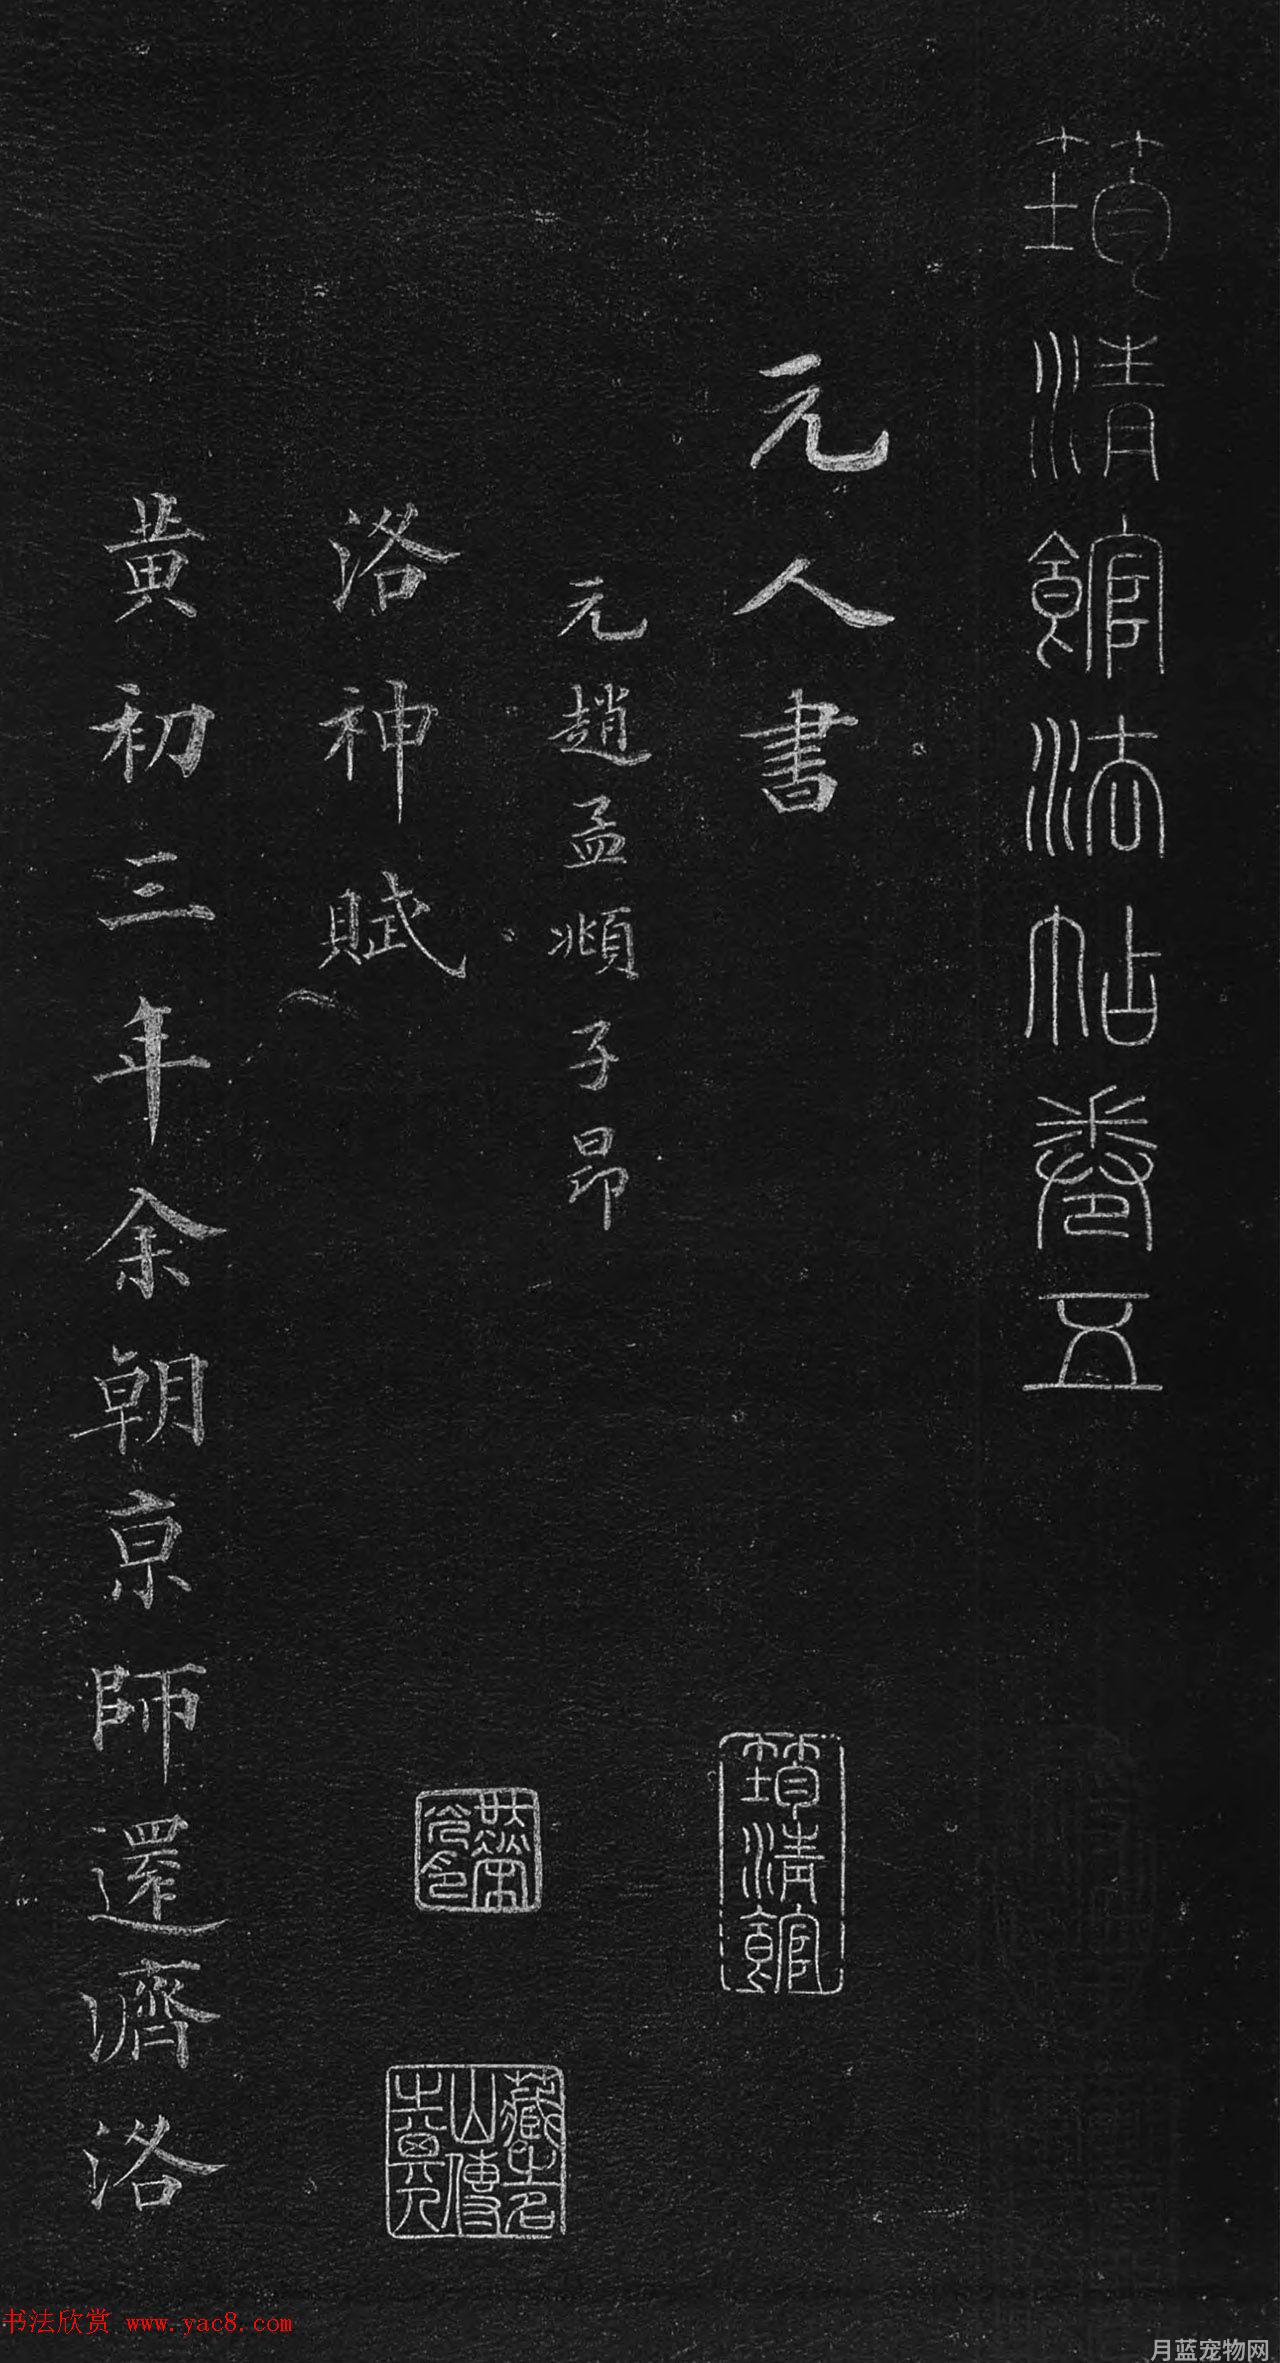 筠清館法帖卷五
元人書
元趙孟頫子昂
洛神賦
黄初三年余朝京師還濟洛
筠清館
藏之名山傳之其人
书法欣赏 www.yac8.com
月蓝宠物网